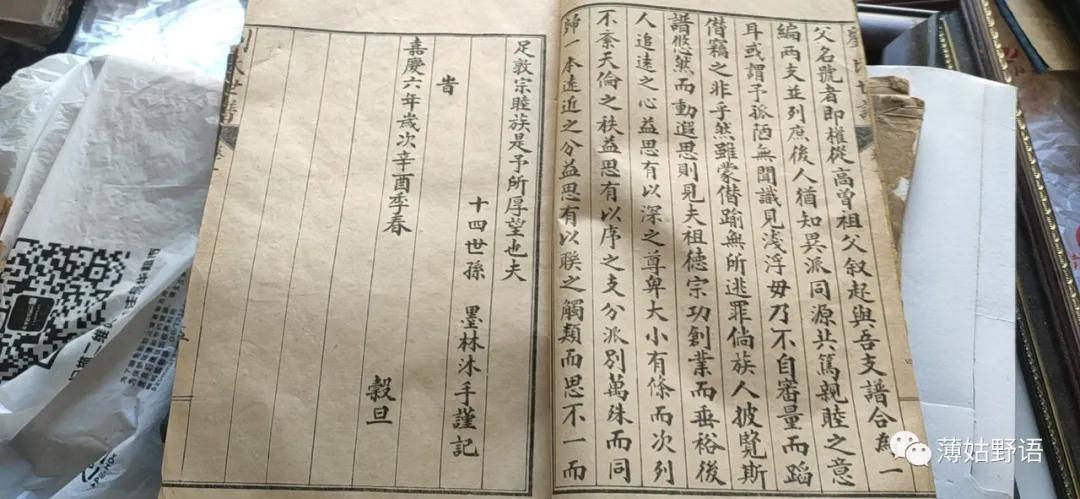 父名號者即權從高曾祖父叙起與吾支譜合為一
編兩支並列庶後人猶知異派同源共篤親睦之意
耳或謂予孤陋無聞識見淺浮毋乃不自審量而蹈
僭竊之非乎然雖蒙僭踰無所逃罪倘族人披覽斯
譜悠然而動遐思則見夫祖德宗功創業而垂裕後
人追遠之心益思有以深之尊卑大小有條而次列
不紊天倫之秩益思有以序之支分派別萬殊而同
歸一本遠近之分益思有以聯之觸類而思不一而
足敦宗睦族是予所厚望也夫
十四世孫 墨林沐手謹記
旹
嘉慶六年歲次辛酉季春
穀旦
薄姑野语